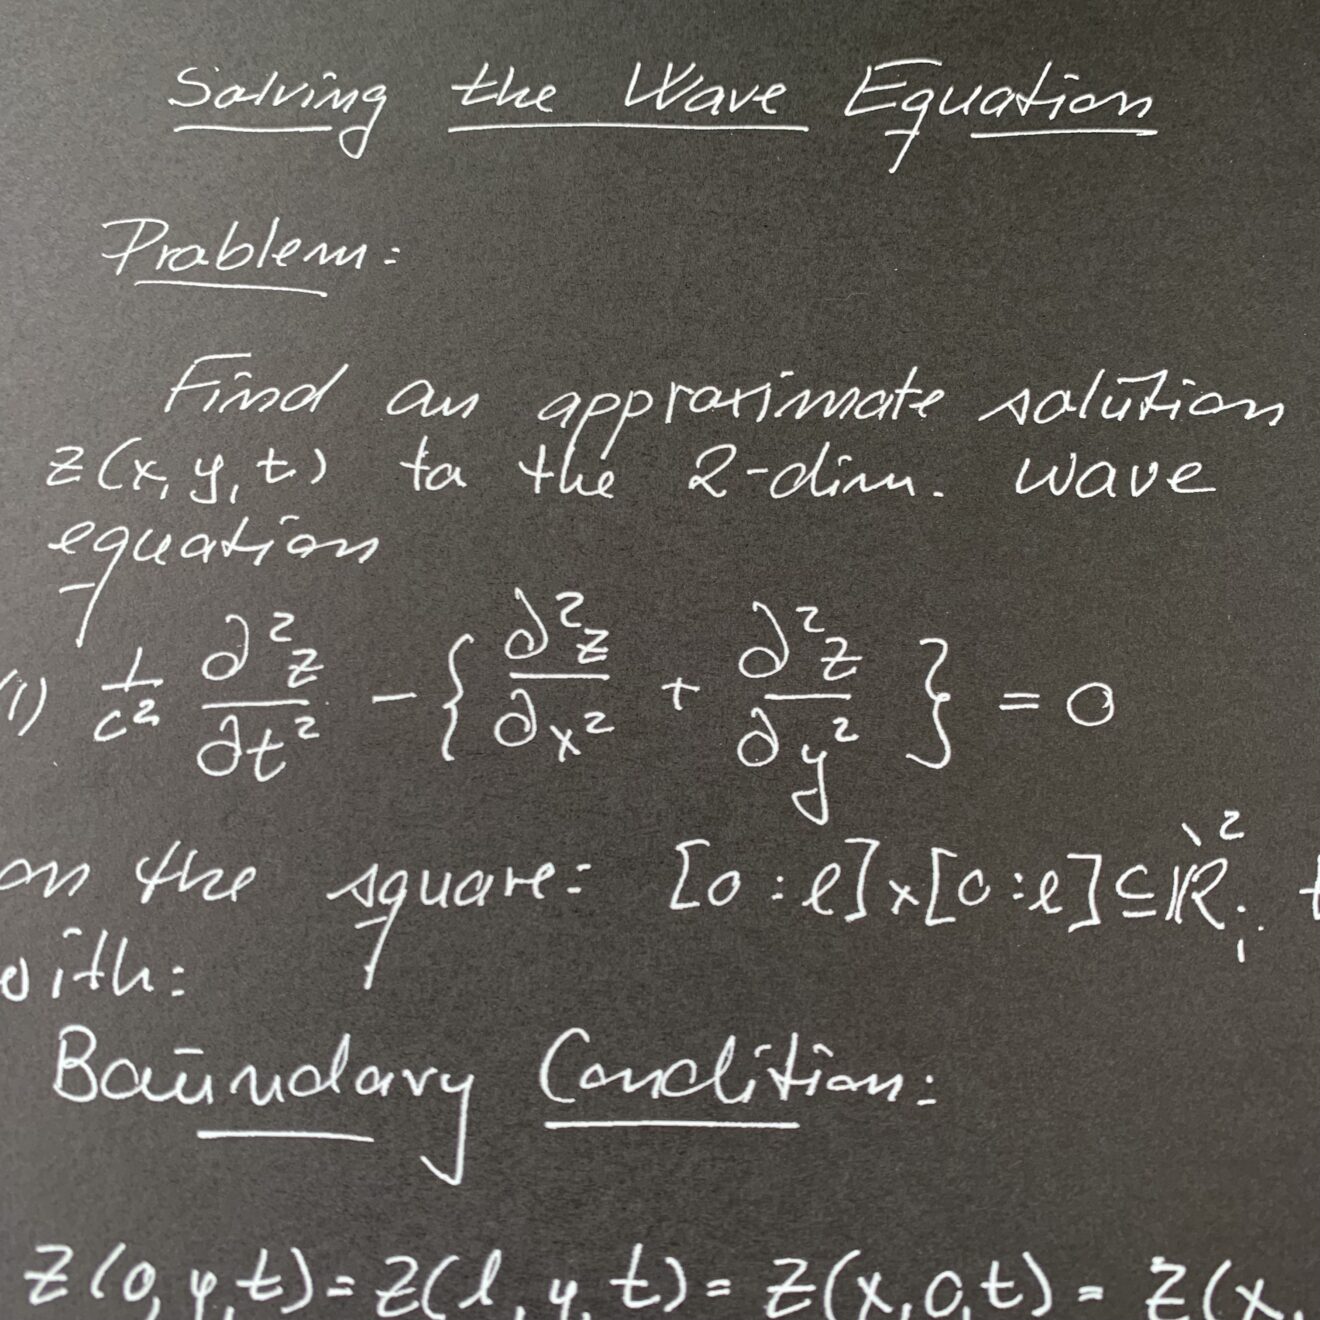 Solving the Wave Equation
Problem:
Find an approximate solution
z(x, y, t) to the 2-dim. wave
equation
(1) 1/c² ∂²z/∂t² - { ∂²z/∂x² + ∂²z/∂y² } = 0
on the square: [0:l]×[0:l]⊆ℝ²;
with:
Boundary Condition:
z(0,y,t)=z(l,y,t)=z(x,0,t)=z(x,